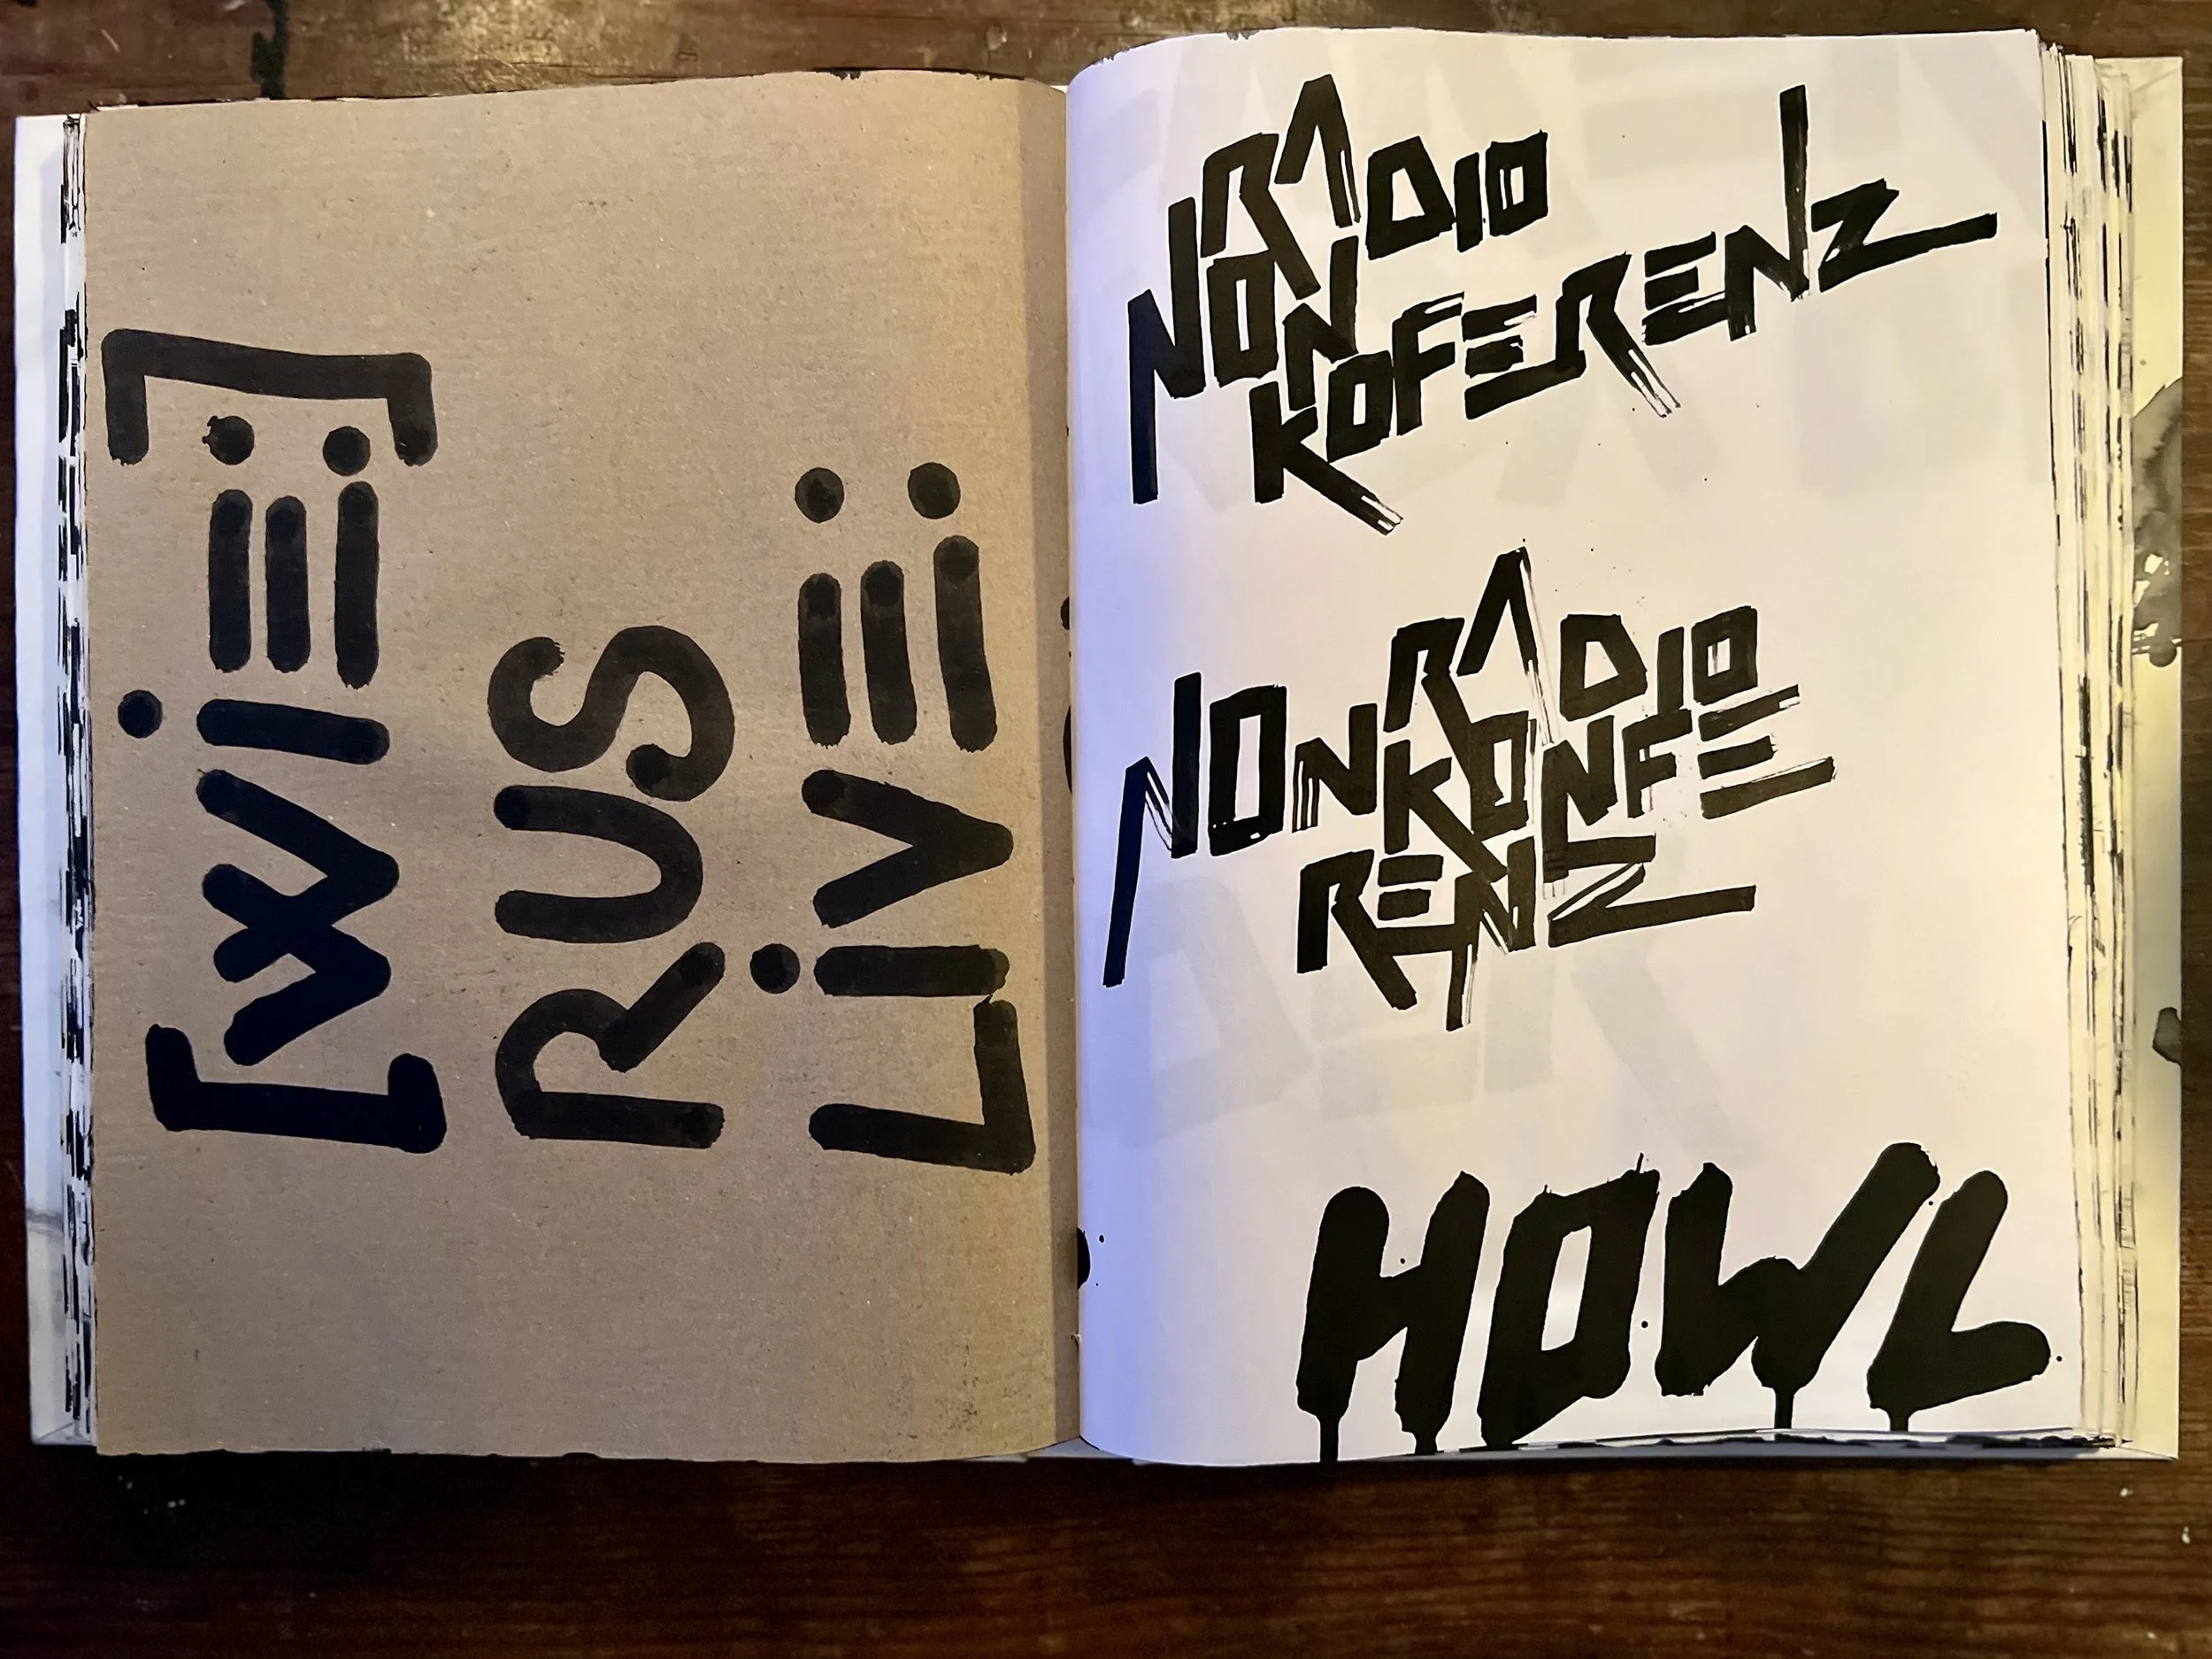 [WiE:]
RUS
LiVE:
RADIO
NON
KOFERENZ
RADIO
NONKONFE
RENZ
HOWL